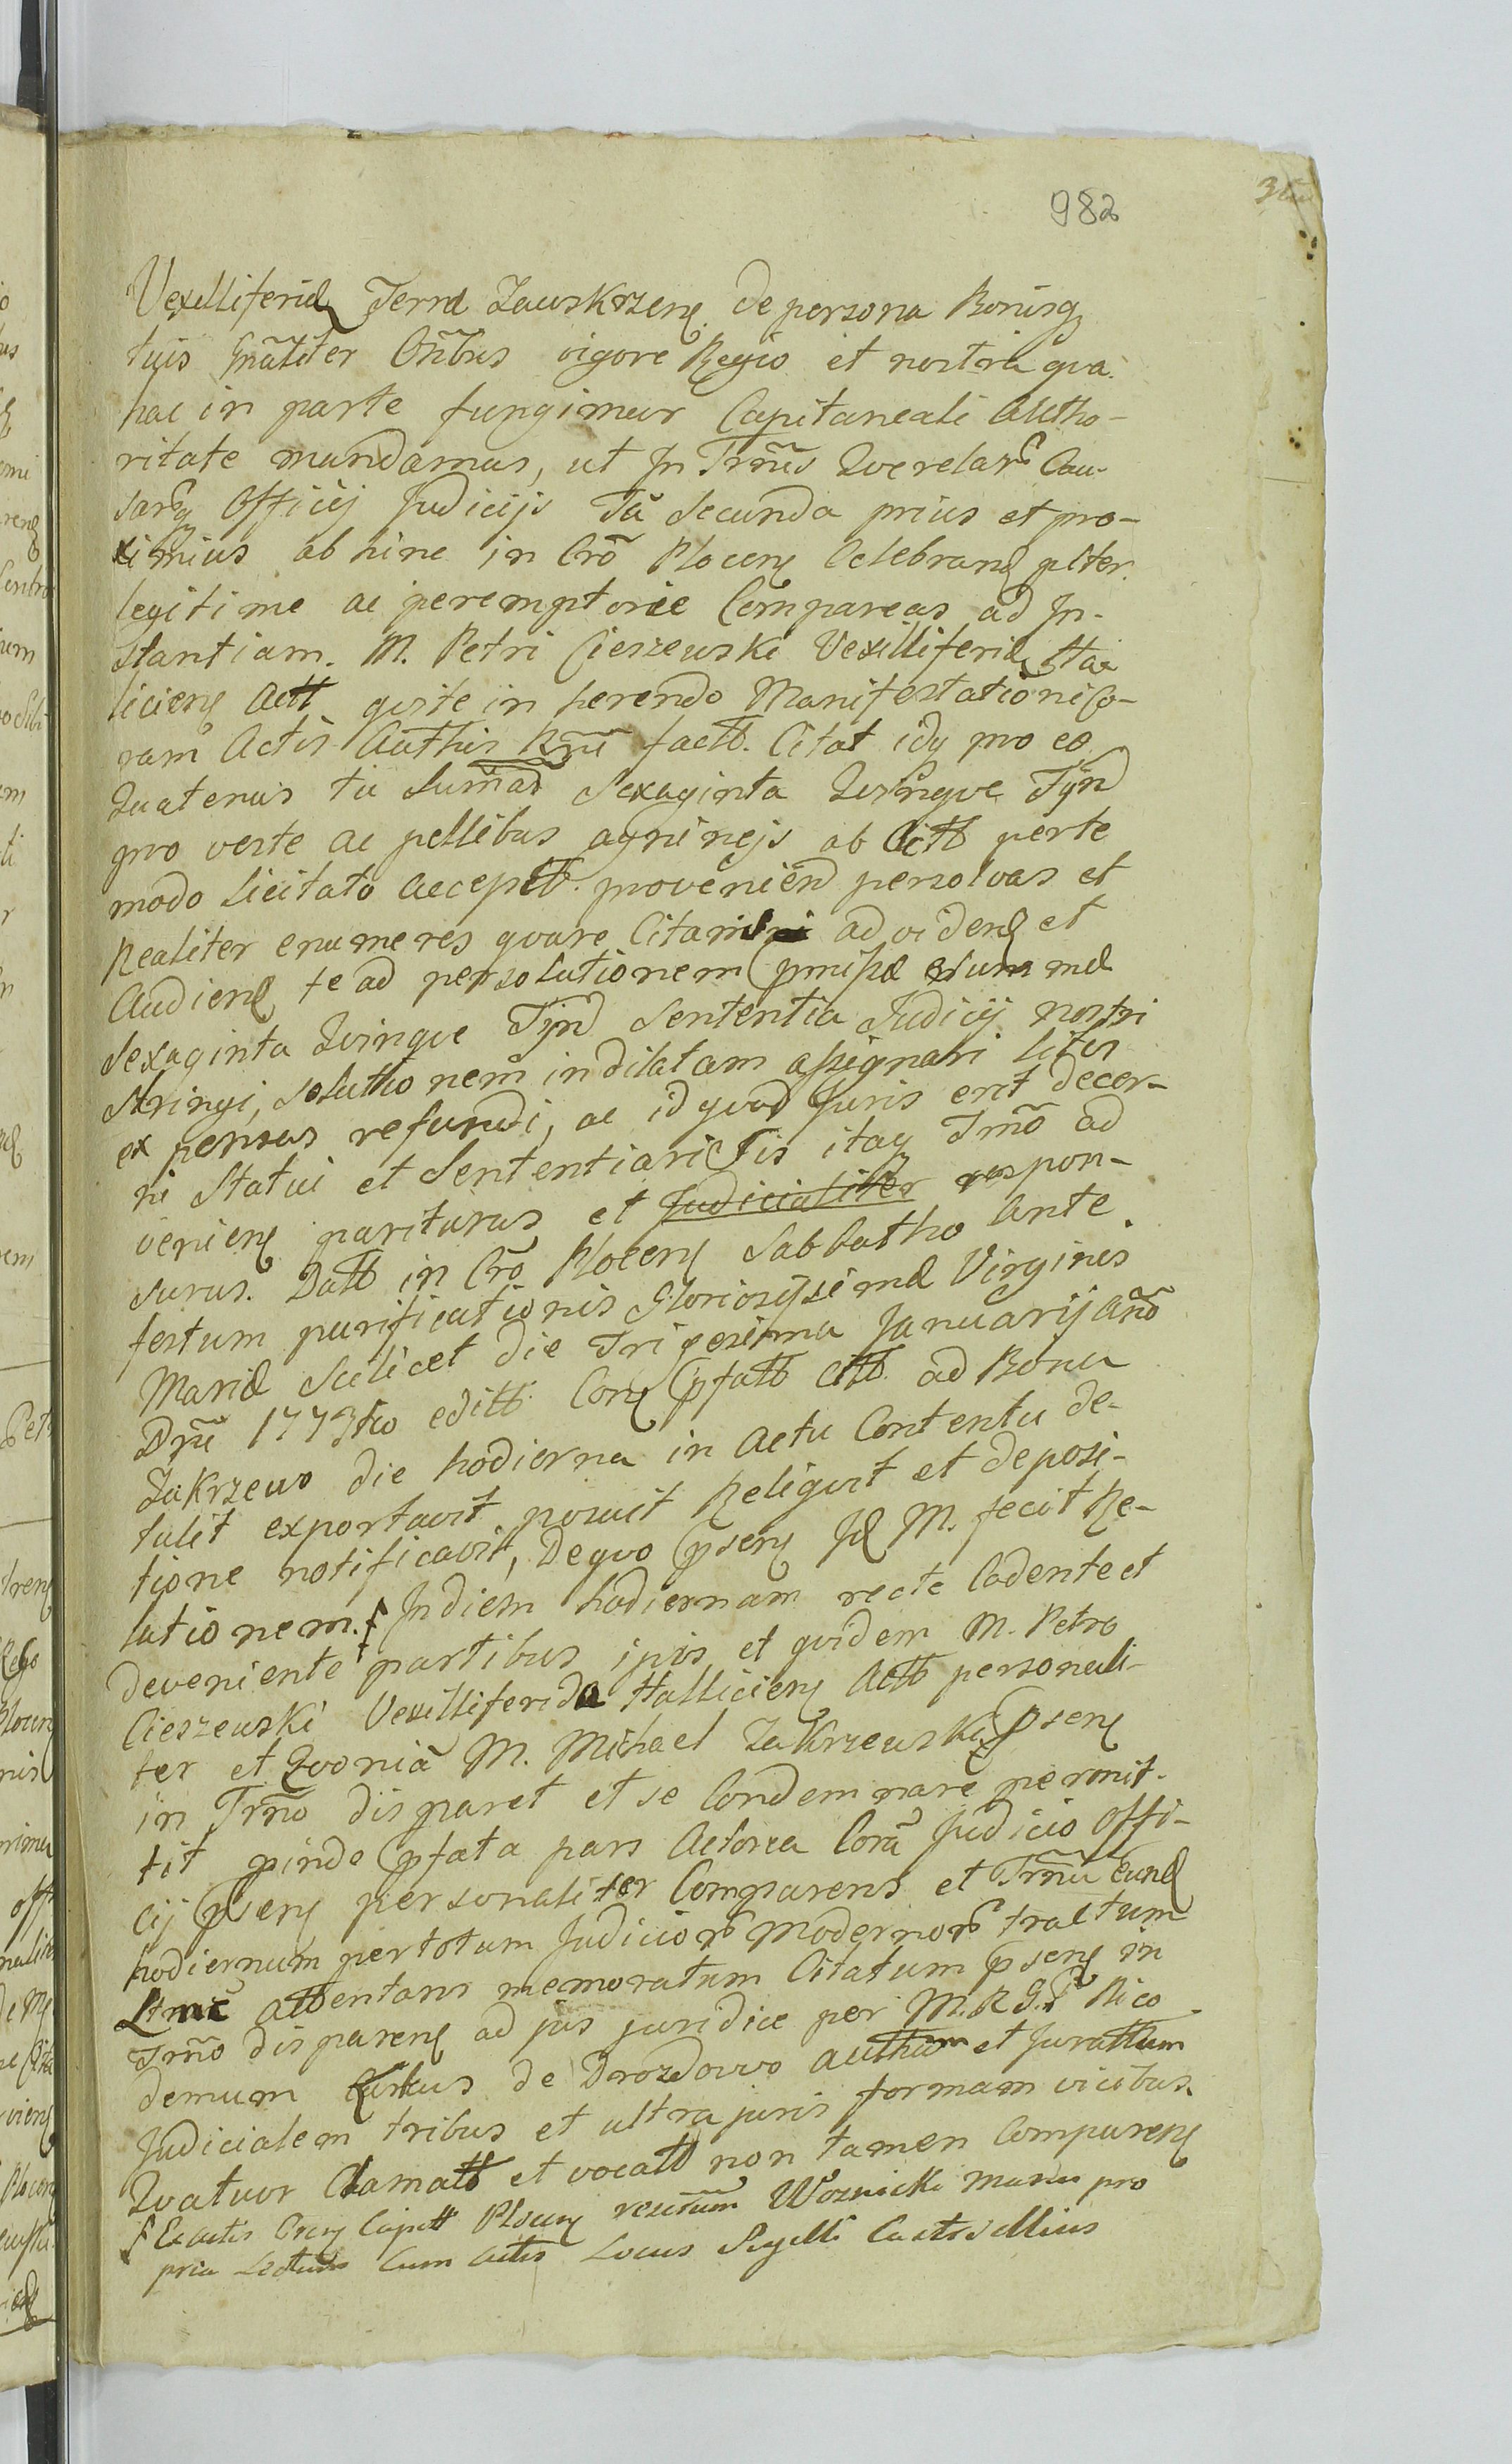 982
Vexilliferidæ Terræ Zawskrzen de persona Bonisq
tuis gnaliter Ombus vigore Regio et nostra qua
hac in parte fungimur Capitaneali Autho-
ritate mandamus, ut In Trnis Querelar Cau-
sarq Officij Judicijs Fa Secunda prius et pro-
ximius ab hinc in Cro Plocen Celebrand plter
legitime ac peremptorie Compareas ad In-
stantiam. M. Petri Cieszewski Vexilliferidæ Ha
licien Actt qiste in herendo Manifestationi Co-
ram Actis Authis Rni factt. Citat idq pro eo
Quatenus tu Sumas Sexaginta Quinque Fynd
pro veste ac pellibus agninejs ab Actt perte
modo licitato accept. proveniend persolvas et
Realiter enumeres quare Citaris ad vidend et
Audiend te ad persolutionem pmissæ summæ
Sexaginta Quinque Fynd Sententia Judicij nostri
Stringi, solutionem indilatam assignari litis
expensas refundi, ac id quod Juris erit decer-
ni Statui et Sententiari sis itaq Trno ad
venien pariturus et Judicialiter respon-
surus. Datt in Cro Plocen Sabbatho Ante
festum purificationis Gloriosissimæ Virginis
Mariæ Scilicet die Trigesima Januarij Ano
Dni 1773tio editt Con pfatt Citt. ad Bona
Zakrzewo die hodierna in Actu Contentu de-
tulit exportavit posuit Reliquit et deposi-
tione notificavit, De quo psen Id M. fecit Re-
lationem. In diem hodiernam recte Cadente et
deveniente partibus ipis et quidem M. Petro
Cieszewski Vexilliferida Hallicien Actt personali-
ter et Quonia M. Michael Zakrzewski psen
in Trno disparet et se Condemnare permit-
tit pinde pfata pars Actorea Cora Judicio Offi-
cij psen personaliter Comparens et Trnu Eund
hodiernum per totum Judicior Modernor tractum
Ltme attentans memoratum Citatum psen in
Trno disparen ad jus juridice per M. R G. Nico
demum de Drozdowo Authum et Jurattum
Judicialem tribus et ultra juris formam vicibus
Quatuor Clamatt et vocatt non tamen Comparen
Ex actis Cren Capitt Plocen Woznicki manu pro
pria Lectum Cum Actis Locus Sigilli